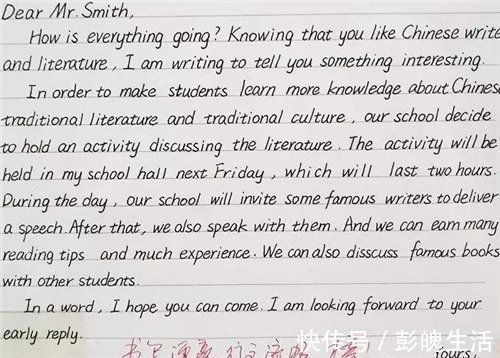 Dear Mr. Smith,
How is everything going? Knowing that you like Chinese write
and literature, I am writing to tell you something interesting.
In order to make students learn more knowledge about Chines
traditional literature and traditional culture, our school decide
to hold an activity discussing the literature. The activity will be
held in my school hall next Friday, which will last two hours.
During the day, our school will invite some famous writers to deliver
a speech. After that, we also speak with them. And we can earn many
reading tips and much experience. We can also disscuss famous books
with other students.
In a word, I hope you can come. I am looking forward to your
early reply.
书写漂亮 行文流畅
快传号 / 彭皥生活